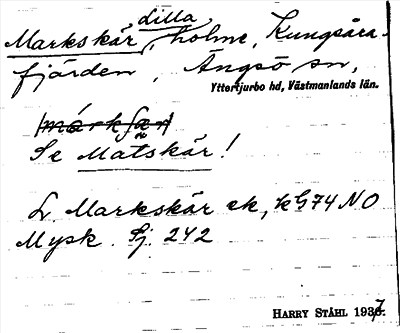 Lilla
Markskär, holme, Kungsåra-
fjärden, Ängsö sn,
Yttertjurbo hd, Västmanlands län.
Se Matskär!
L. Markskär ek, kG74 NO
Mysk. Gj. 242
HARRY STÅHL 1937.